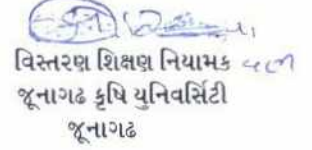 વિસ્તરણ શિક્ષણ નિયામક વતી
જૂનાગઢ કૃષિ યુનિવર્સિટી
જૂનાગઢ